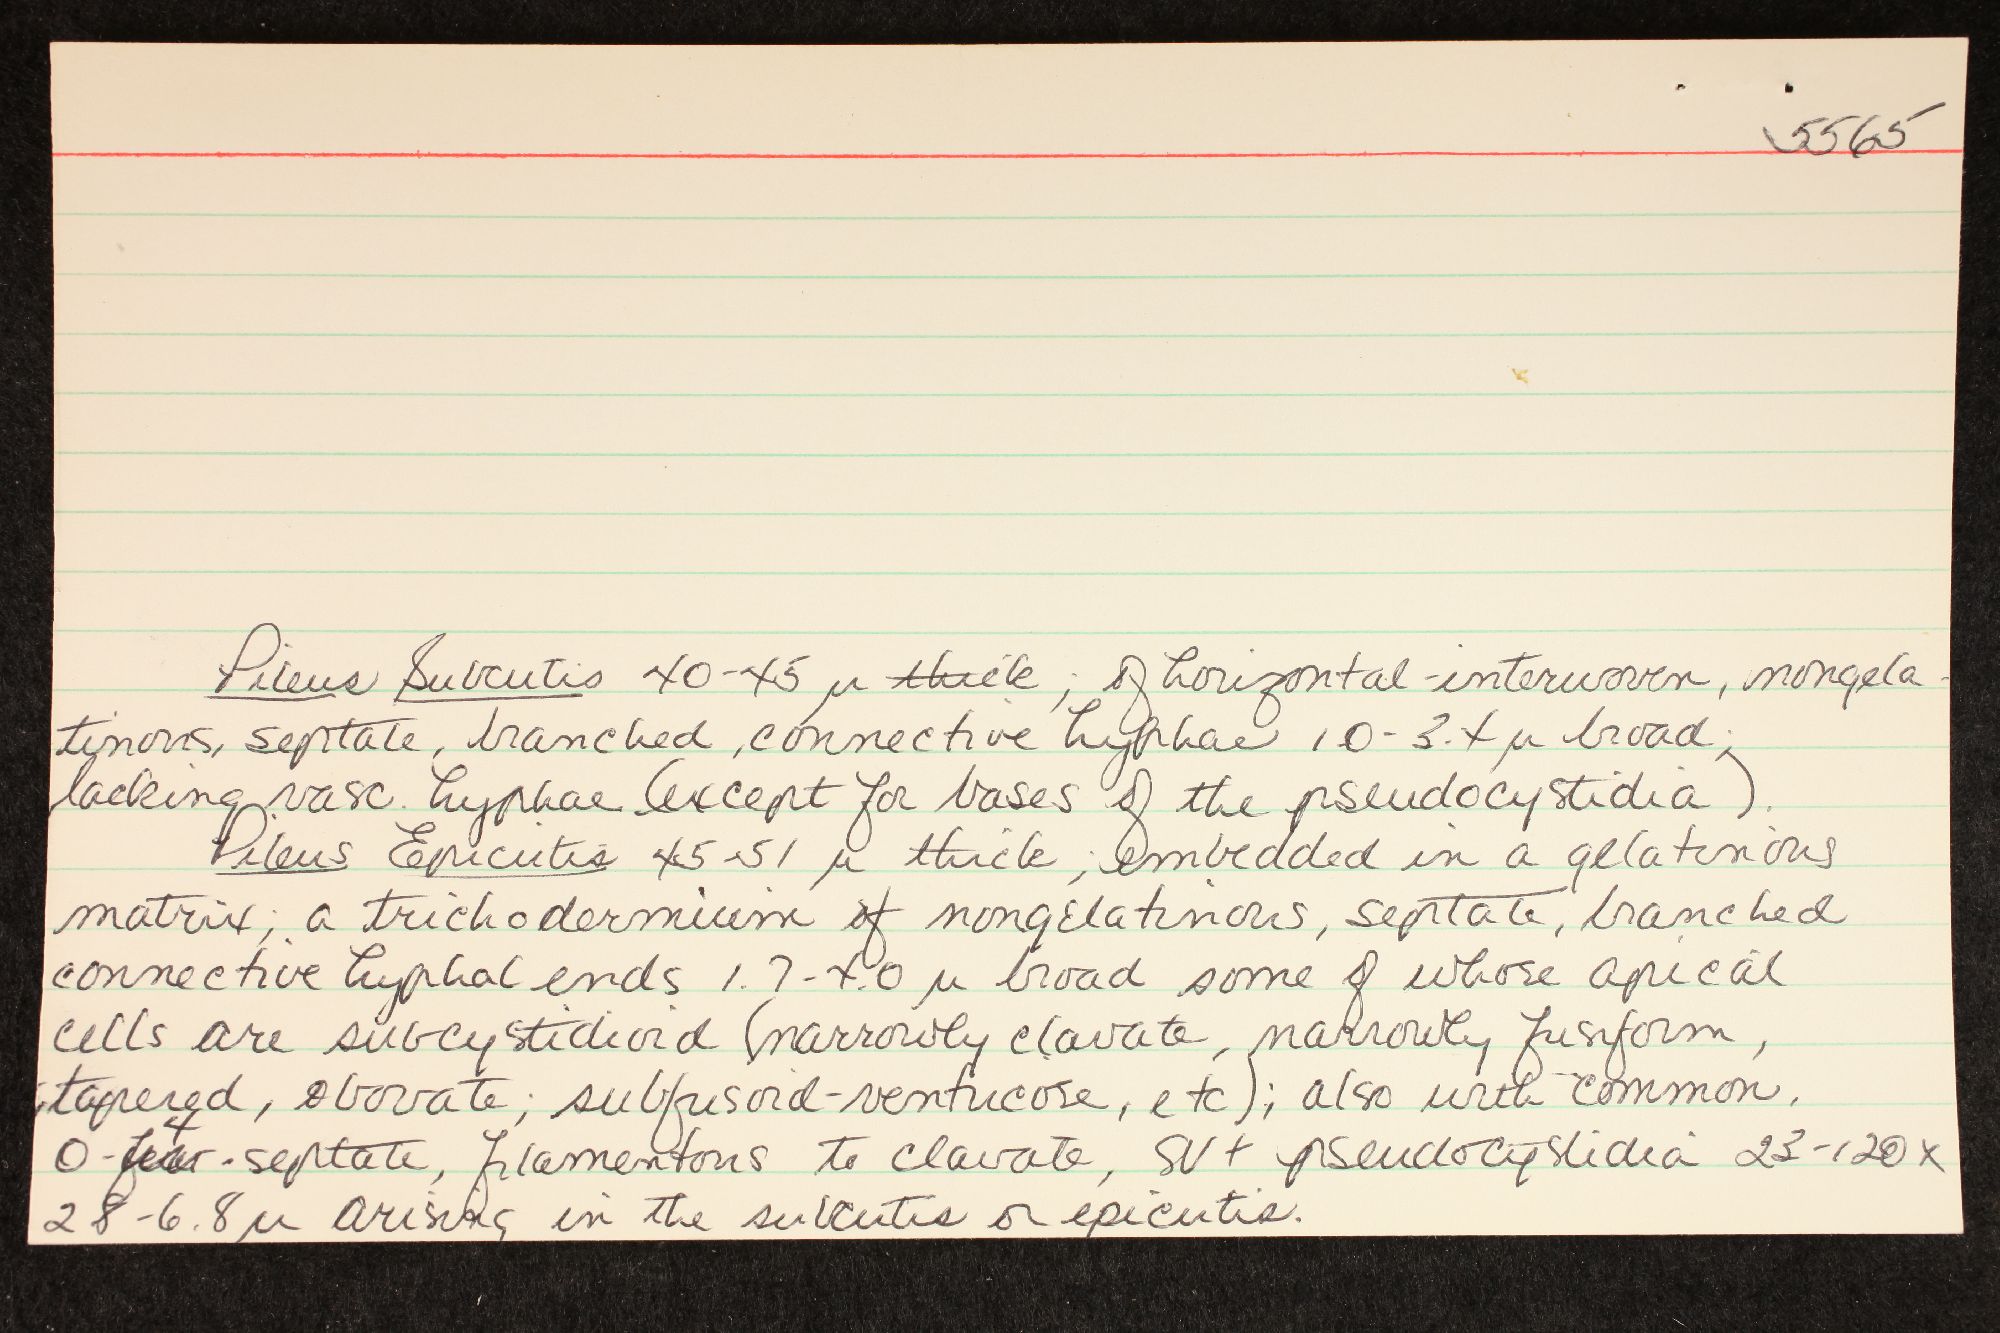 5565
Pileus Subcutis 40-45 µ thick; of horizontal-interwoven, nongela-
tinous, septate, branched, connective hyphae 1.0-3.4 µ broad;
lacking vasc. hyphae (except for bases of the pseudocystidia).
Pileus Epicutis 45-51 µ thick; embedded in a gelatinous
matrix; a trichodermium of nongelatinous, septate, branched
connective hyphal ends 1.7-4.0 µ broad some of whose apical
cells are subcystidioid (narrowly clavate, narrowly fusiform,
tapered, obovate; subfusoid-ventricose, etc); also with common,
0-4-septate, filamentous to clavate, SV+ pseudocystidia 23-120 x
2.8-6.8 µ arising in the subcutis or epicutis.